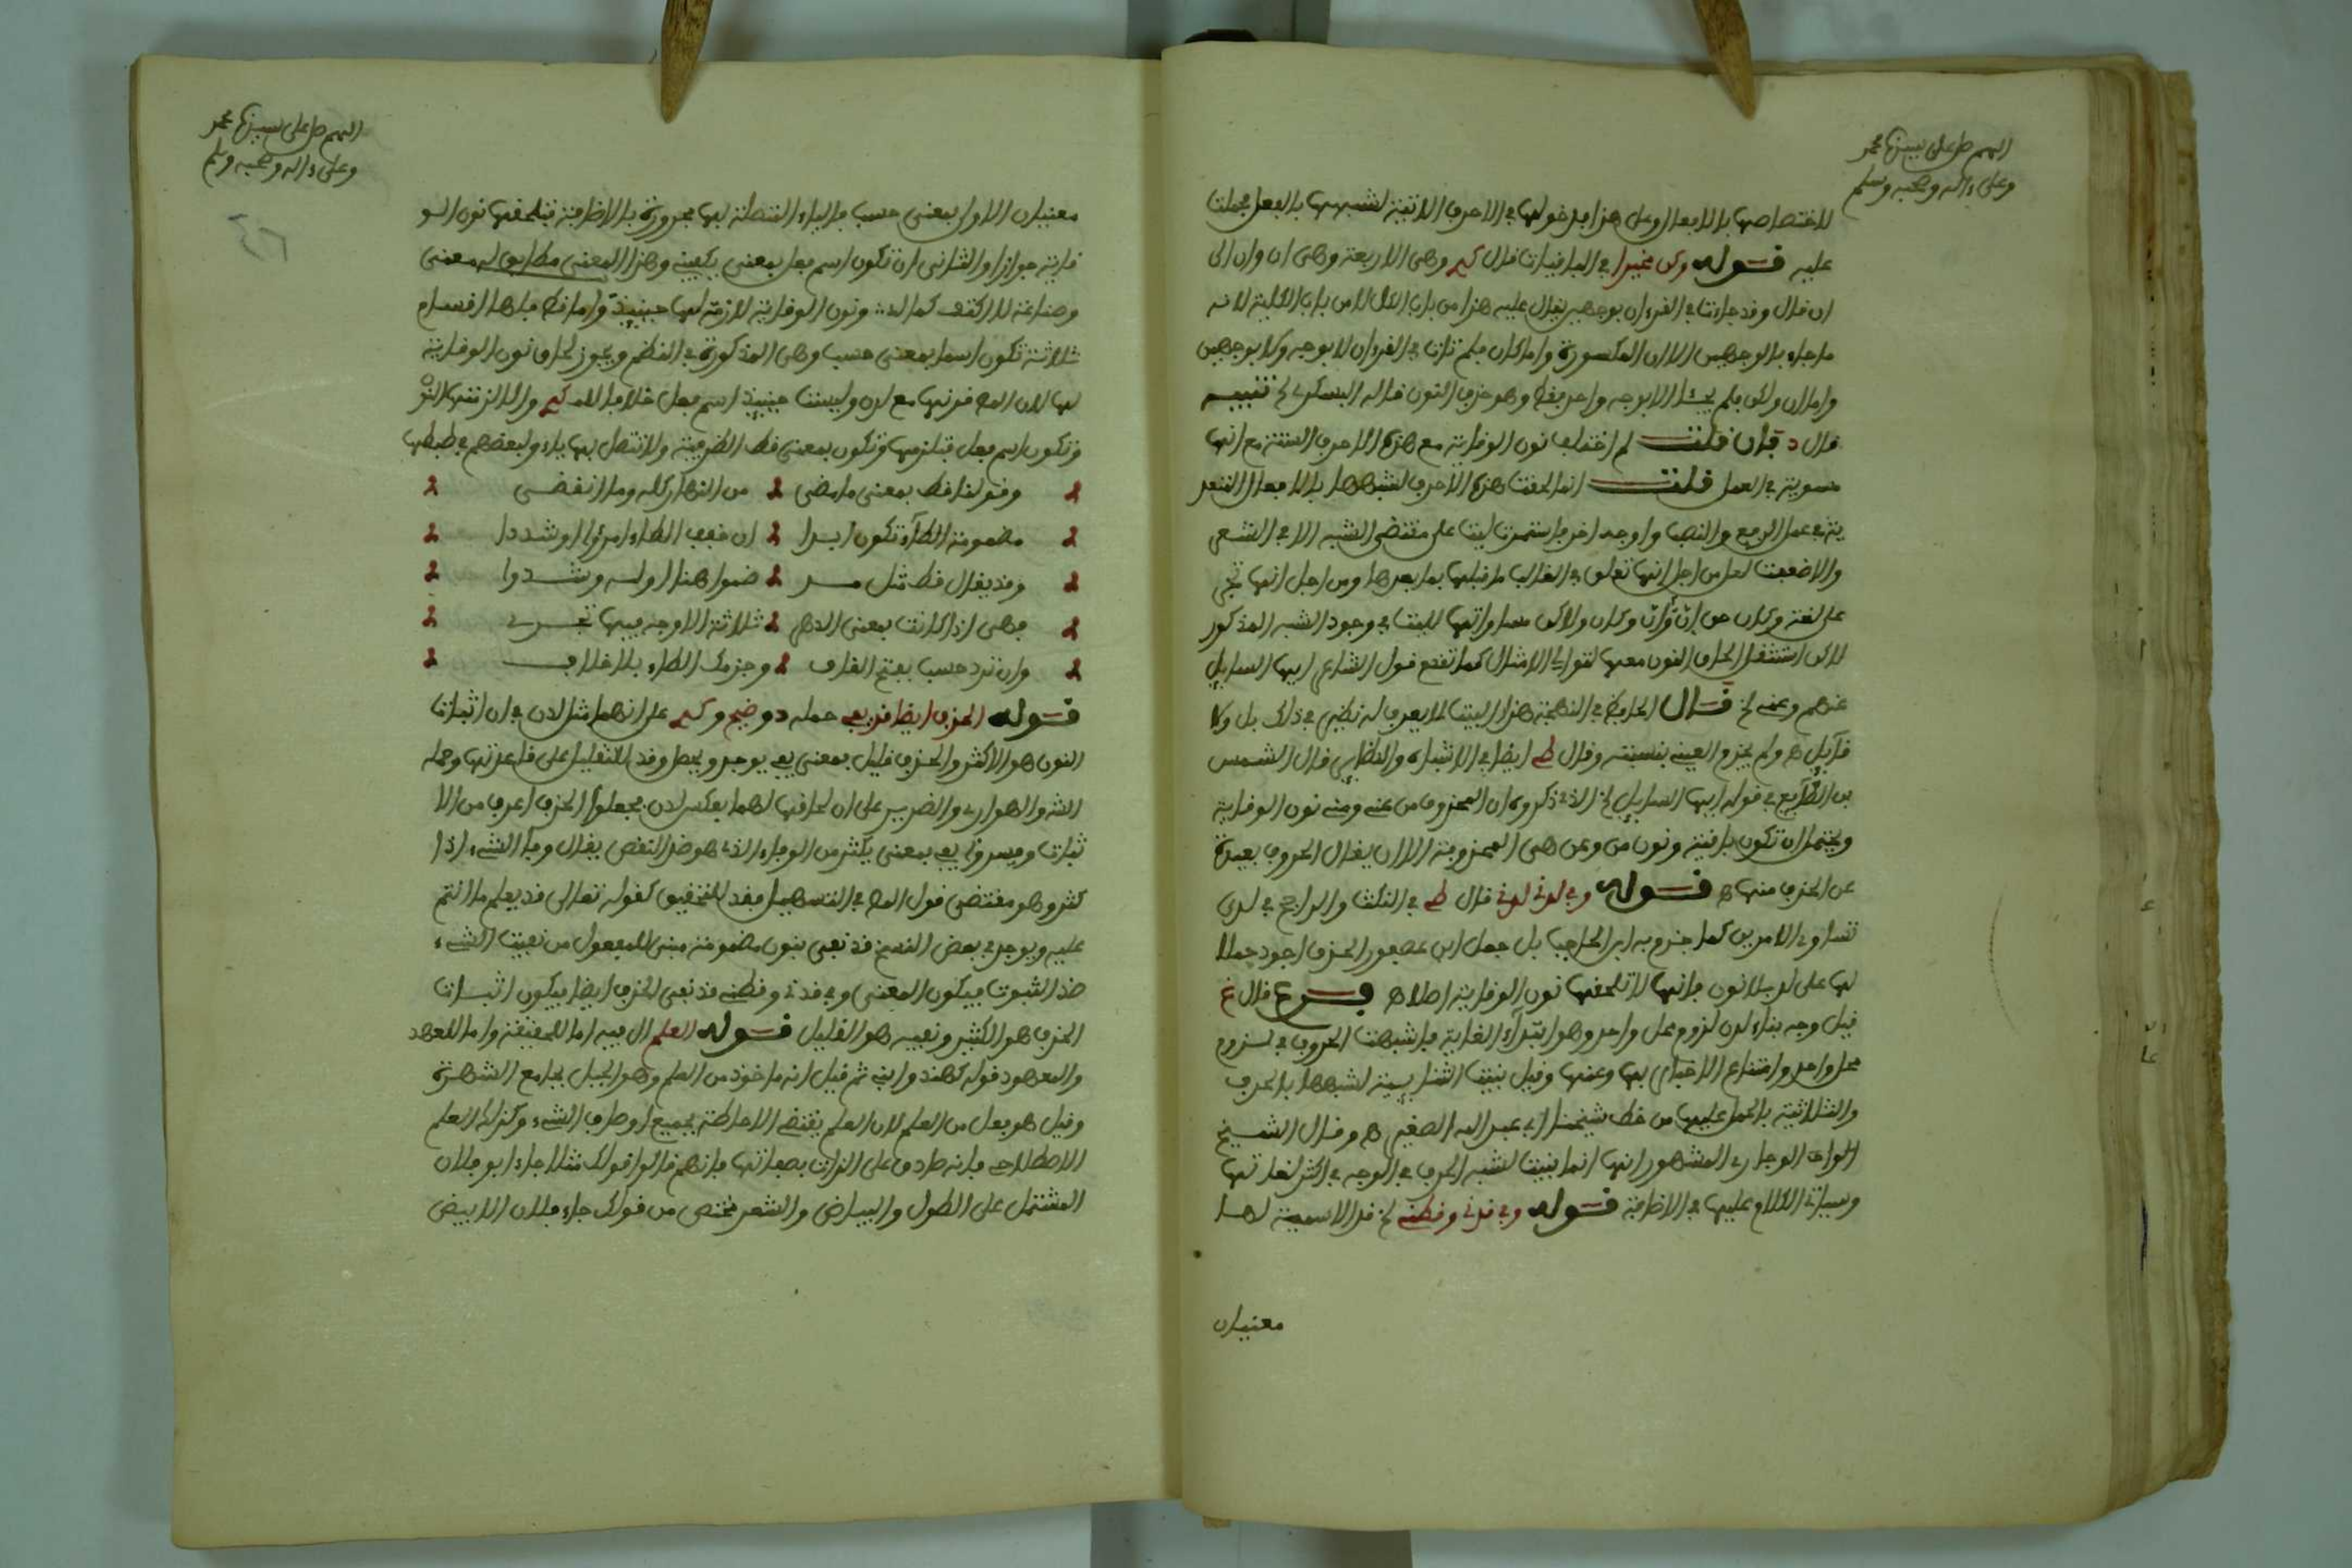 اللهم صل على سيدنا محمد
وعلى ءاله وصحبه وسلم
لاختصاصها بالافعال وعلى هذا فدخولها في الاحرف الاتية لشبهها بالفعل فحملت
عليه قوله وكن مخيرا في الباقيات قال كبير وهي الاربعة وهي ان وان الى
ان قال وقد جاءتا في القرءان بوجهين يقال عليه هذا من باب الكل لا من باب الكلية لانه
ما جاء بالوجهين الا ان المكسورة واما كان فلم تات في القرءان لا بوجه ولا بوجهين
واما ان ولكن فلم يجئا الا بوجه واحد فقط وهو حذف النون قاله البسكري لخ تنبيه
قال د فان قلت لم اختلف نون الوقاية مع هذه الاحرف الستة مع انها
مسوية في العمل قلت انما لحقت هذه الاحرف لشبهها بالافعال المتعد
ية في عمل الرفع والنصب واوجه اخر فاستمرت ليت على مقتضى الشبه الا في الشعر
والا ضعفت لعل من اجل انها تعلق في الغالب ما قبلها بما بعدها ومن اجل انها تجر
على لغة وكان من ان وأن وكان ولاكن مساواتها لليت في وجود الشبه المذكور
لاكن استثقل الحاق النون معها لتوالي الامثال كما تقدم قول الشاعر ايها السايل
عنهم وعني لخ قال الحافظ في البهجة هذا البيت لا يعرف له نظير في ذلك بل ولا
قايل ه ولم يجزم العيني بنسبته وقال ط ايضا في الاشباه والنظاير قال الشمس
بن الصايغ في قوله ايها السايل لخ الذي ذكروه ان المحذوف من عني ومني نون الوقاية
ويحتمل ان تكون باقية ونون من وعن هي المحذوفة الا ان يقال الحروف بعيدة
عن الحذف منها ه قوله وفي لدني لدني قال ط في النكت والراجح في لدى
تساوي الامرين كما جزم به ابن الحاجب بل جعل ابن عصفور الحذف اجود حملا
لها على لد بلا نون فانها لا تلحقها نون الوقاية اصلا ه فرع قال غ
قيل وجه بناء لدن لزوم محل واحد وهو ابتداء الغاية فاشبهت الحروف في لزوم
محل واحد وامتناع الاخبار بها وعنها وقيل بنيت الثنايية لشبهها بالحرف
والثلاثية بالحمل عليها من خط شيخنا ابي عبد الله الصغير ه وقال الشيخ
الوادي الوجاري المشهور انها انما بنيت لشبه الحرف في الوجه في اكثر لغاتها
وسياتي الكلام عليها في الاضافة قوله وفي قدني وقطني لخ قد الاسمية لها
معنيان
اللهم صل على سيدنا محمد
وعلى ءاله وصحبه وسلم
معنيان الاول بمعنى حسب فالياء المتصلة بها مجرورة بالاضافة فتلحقها نون الو
قاية جوازا والثاني ان تكون اسم فعل بمعنى يكفيني وهذا المعنى مطابق له معنى
وصناعة لا اكتف كما ونون الوقاية لازمة لها حينيذ واما قط فلها اقسام
ثلاثة تكون اسما بمعنى حسب وهي المذكورة في النظم ويجوز لحاق نون الوقاية
لها لان المص قرنها مع لدن وليست حينيذ اسم فعل خلافا لـ كبير والا لزمتها النون
وتكون اسم فعل فتلزمها وتكون بمعنى قط الظرفية ولا تتصل بها ياء ولبعضهم في ضبطها
وقولنا قط بمعنى ما مضى من النهار كله وما انقضى
مضمومة الطاء تكون ابدا ان خفف الطاء امرؤ او شددا
وقد يقال قط مثل مد ضموا هنا اوله وشددوا
فهي اذا كانت بمعنى الدهر ثلاثة الاوجه فيها تجري
وان ترد حسب بفتح القاف وجزمك الطاء بلا خلاف
قوله الحذف ايضا قد يفي حمله د وضيح وكبير على انهما مثل لدن في ان اثبات
النون هو الاكثر والحذف قليل بمعنى يفي يوجد ويحصل وقد للتقليل على قاعدتها وحمله
الش والهواري والضرير على ان لحاقها لهما بعكس لدن فجعلوا الحذف اعرف من الا
ثبات وفسروا يفي بمعنى يكثر من الوفاء الذي هو ضد النقص يقال وفى الشيء اذا
كثر وهو مقتضى قول المص في التسهيل فقد للتحقيق كقوله تعالى قد يعلم ما انتم
عليه ويوجد في بعض النسخ قد نفي بنون مضمومة مبني للمفعول من نفيت الشيء
ضد الثبوت فيكون المعنى وفي قدني وقطني قد نفي الحذف ايضا فيكون اثبات
الحذف هو الكثير ونفيه هو القليل قوله العلم ال فيه اما للحقيقة واما للعهد
والمعهود قوله كهند وابني ثم قيل انه ماخوذ من العلم وهو الجبل بجامع الشهرة
وقيل هو فعل من العلم لان العلم يقتضي الاحاطة بجميع اوصاف الشيء وكذلك العلم
الاصطلاحي فانه صادق على الذات بصفاتها فانهم قالوا قولك مثلا جاء ابو فلان
المشتمل على الطول والبياض والشعر مختص من قولك جاء فلان الابيض